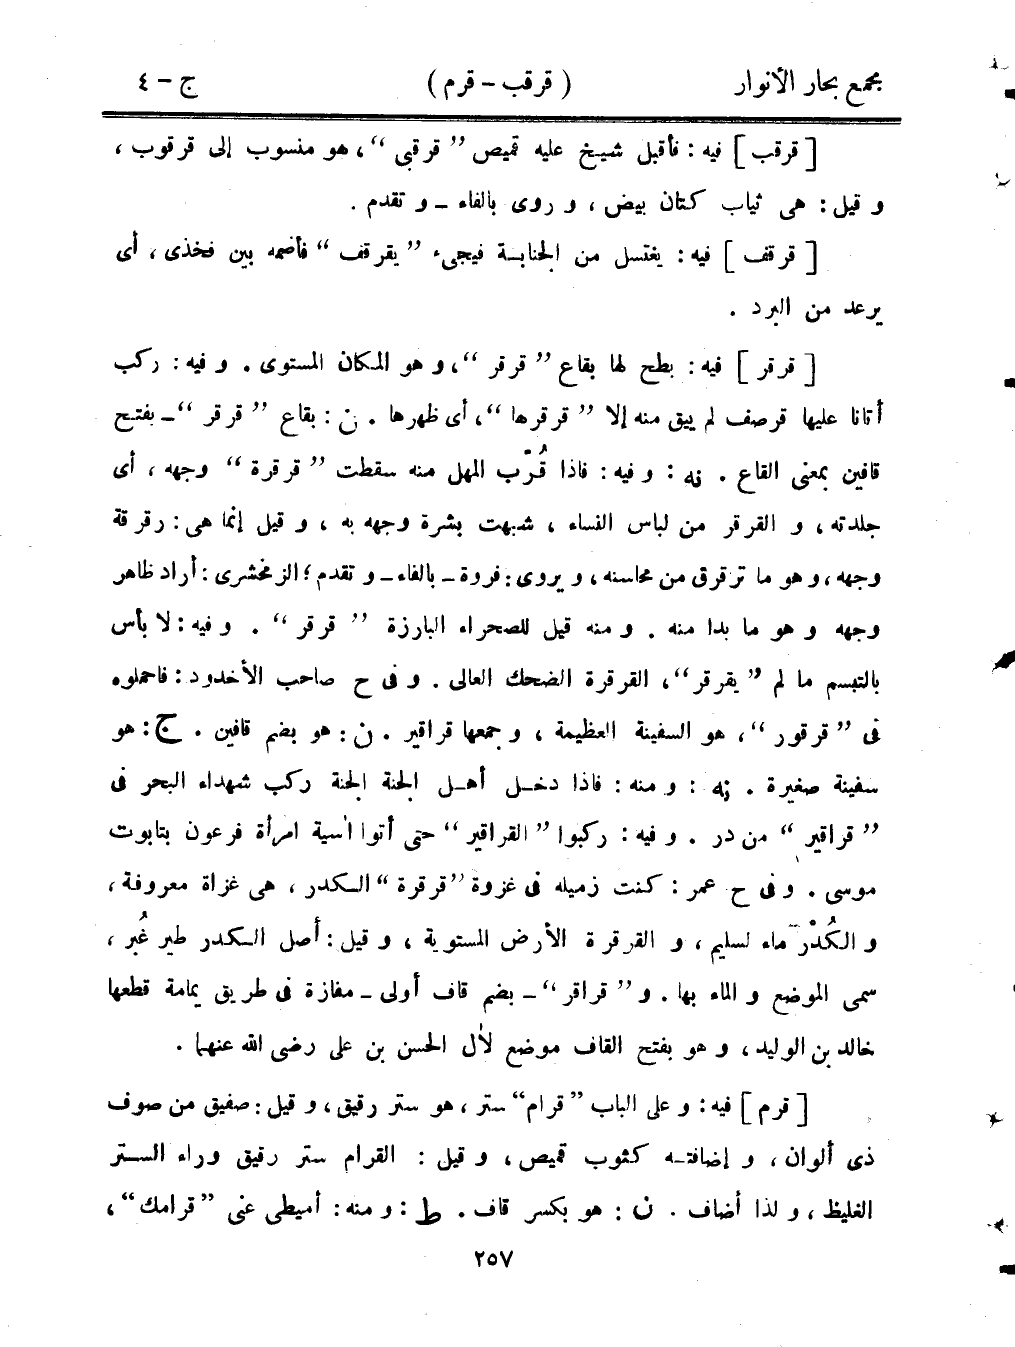 مجمع بحار الأنوار ( قرقب – قرم ) ج – ٤
[ قرقب ] فيه : فأقبل شيخ عليه قميص ” قرقبى “ ، هو منسوب إلى قرقوب ،
و قيل : هى ثياب كتان بيض ، و روى بالفاء – و تقدم .
[ قرقف ] فيه : يغتسل من الجنابة فيجىء ” يقرقف “ فأضمه بين فخذى ، أى
يرعد من البرد .
[ قرقر ] فيه : بطح لها بقاع ” قرقر “ ، و هو المكان المستوى . و فيه : ركب
أتانا عليها قرصف لم يبق منه إلا ” قرقرها “ ، أى ظهرها . ن : بقاع ” قرقر “ – بفتح
قافين بمعنى القاع . نه : و فيه : فاذا قُرّب المهل منه سقطت ” قرقرة “ وجهه ، أى
جلدته ، و القرقر من لباس النساء ، شبهت بشرة وجهه به ، و قيل إنما هى : رقرقة
وجهه ، و هو ما ترقرق من محاسنه ، و يروى : فروة – بالفاء – و تقدم ؛ الزمخشرى : أراد ظاهر
وجهه و هو ما بدا منه . و منه قيل للصحراء البارزة ” قرقر “ . و فيه : لا بأس
بالتبسم ما لم ” يقرقر “ ، القرقرة الضحك العالى . و فى ح صاحب الأخدود : فاحملوه
فى ” قرقور “ ، هو السفينة العظيمة ، و جمعها قراقير . ن : هو بضم قافين . ج : هو
سفينة صغيرة . نه : و منه : فاذا دخل أهل الجنة الجنة ركب شهداء البحر فى
” قراقير “ من در . و فيه : ركبوا ” القراقير “ حتى أتوا آسية امرأة فرعون بتابوت
موسى . و فى ح عمر : كنت زميله فى غزوة ” قرقرة “ الكدر ، هى غزاة معروفة ،
و الكُدْر ماء لسليم ، و القرقرة الأرض المستوية ، و قيل : أصل الكدر طير غُبر ،
سمى الموضع و الماء بها . و ” قراقر “ – بضم قاف أولى – مفازة فى طريق يمامة قطعها
خالد بن الوليد ، و هو بفتح القاف موضع لآل الحسن بن على رضى الله عنهما .
[ قرم ] فيه : و على الباب ” قرام “ ستر ، هو ستر رقيق ، و قيل : صفيق من صوف
ذى ألوان ، و إضافته كثوب قميص ، و قيل : القرام ستر رقيق وراء الستر
الغليظ ، و لذا أضاف . ن : هو بكسر قاف . ط : و منه : أميطى عنى ” قرامك “ ،
٢٥٧